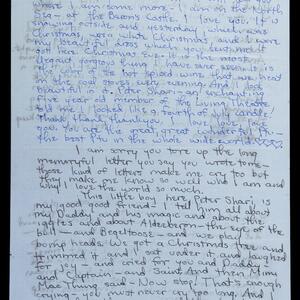 where I am some more - I am on the North
Sea - at the Baron's Castle. I love you. It is
snowing outside and yesterday, which was
Christmas, was a white Christmas and I wore
my beautiful dress which you designed it
for Christmas Eve. It is the most
elegant gorgeous thing I have ever seen. It is
the color of the hot spiced wine that we heat
on the coal stoves every evening. And I look
beautiful in it. Peter Shari - an enchanting
five year old member of the Living Theatre
told me I looked like a fourth of July candle.
Thank, thank, thank you. I love you I love
you. You are the great, great wonderful
the best in the whole wide world.
I am sorry you tore up the long
memoryful letter you say you wrote to me -
those kind of letters make me cry too but
they make me know so well who I am and
why I love the world so much.
This little boy here, Peter Shari, is
my good good friend. I tell him all about
my Daddy and his magic and about the
eagles and about Aldeberon - the eye of the
bull - and Begeltoots - and we play
bomp heads. We got a Christmas tree and
trimmed it and I sat over it and laughed
for you and cried for you and Daddy
and Captain - and Saint. And then Mimi
Mac Thing said - Now stop! That's enough
crying - you must never cry too long. And I